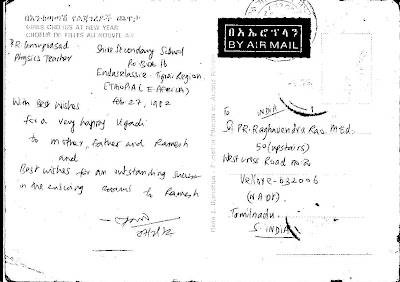 በእንቁጣጣሽ የልጃገረዶች ጨዋታ
GIRLS CHORUS AT NEW YEAR
CHOEUR DE FILLES AU NOUVEL AN
Physics Teacher
Shire Secondary School
PO Box 16
Endaselassie - Tigrai Region
ETHIOPIA (E. AFRICA)
Feb 27, 1982
With Best Wishes
for a very happy Ugadi
to mother, father and Ramesh
and
Best wishes for an outstanding success
in the ensuing exams to Ramesh
በአኤሮፕላን
BY AIR MAIL
To
INDIA
P.R. Raghavendra Rao M.Ed.
50 (upstairs)
West Cross Road
Vellore - 632006
(N.A.DT)
Tamilnadu
S. INDIA